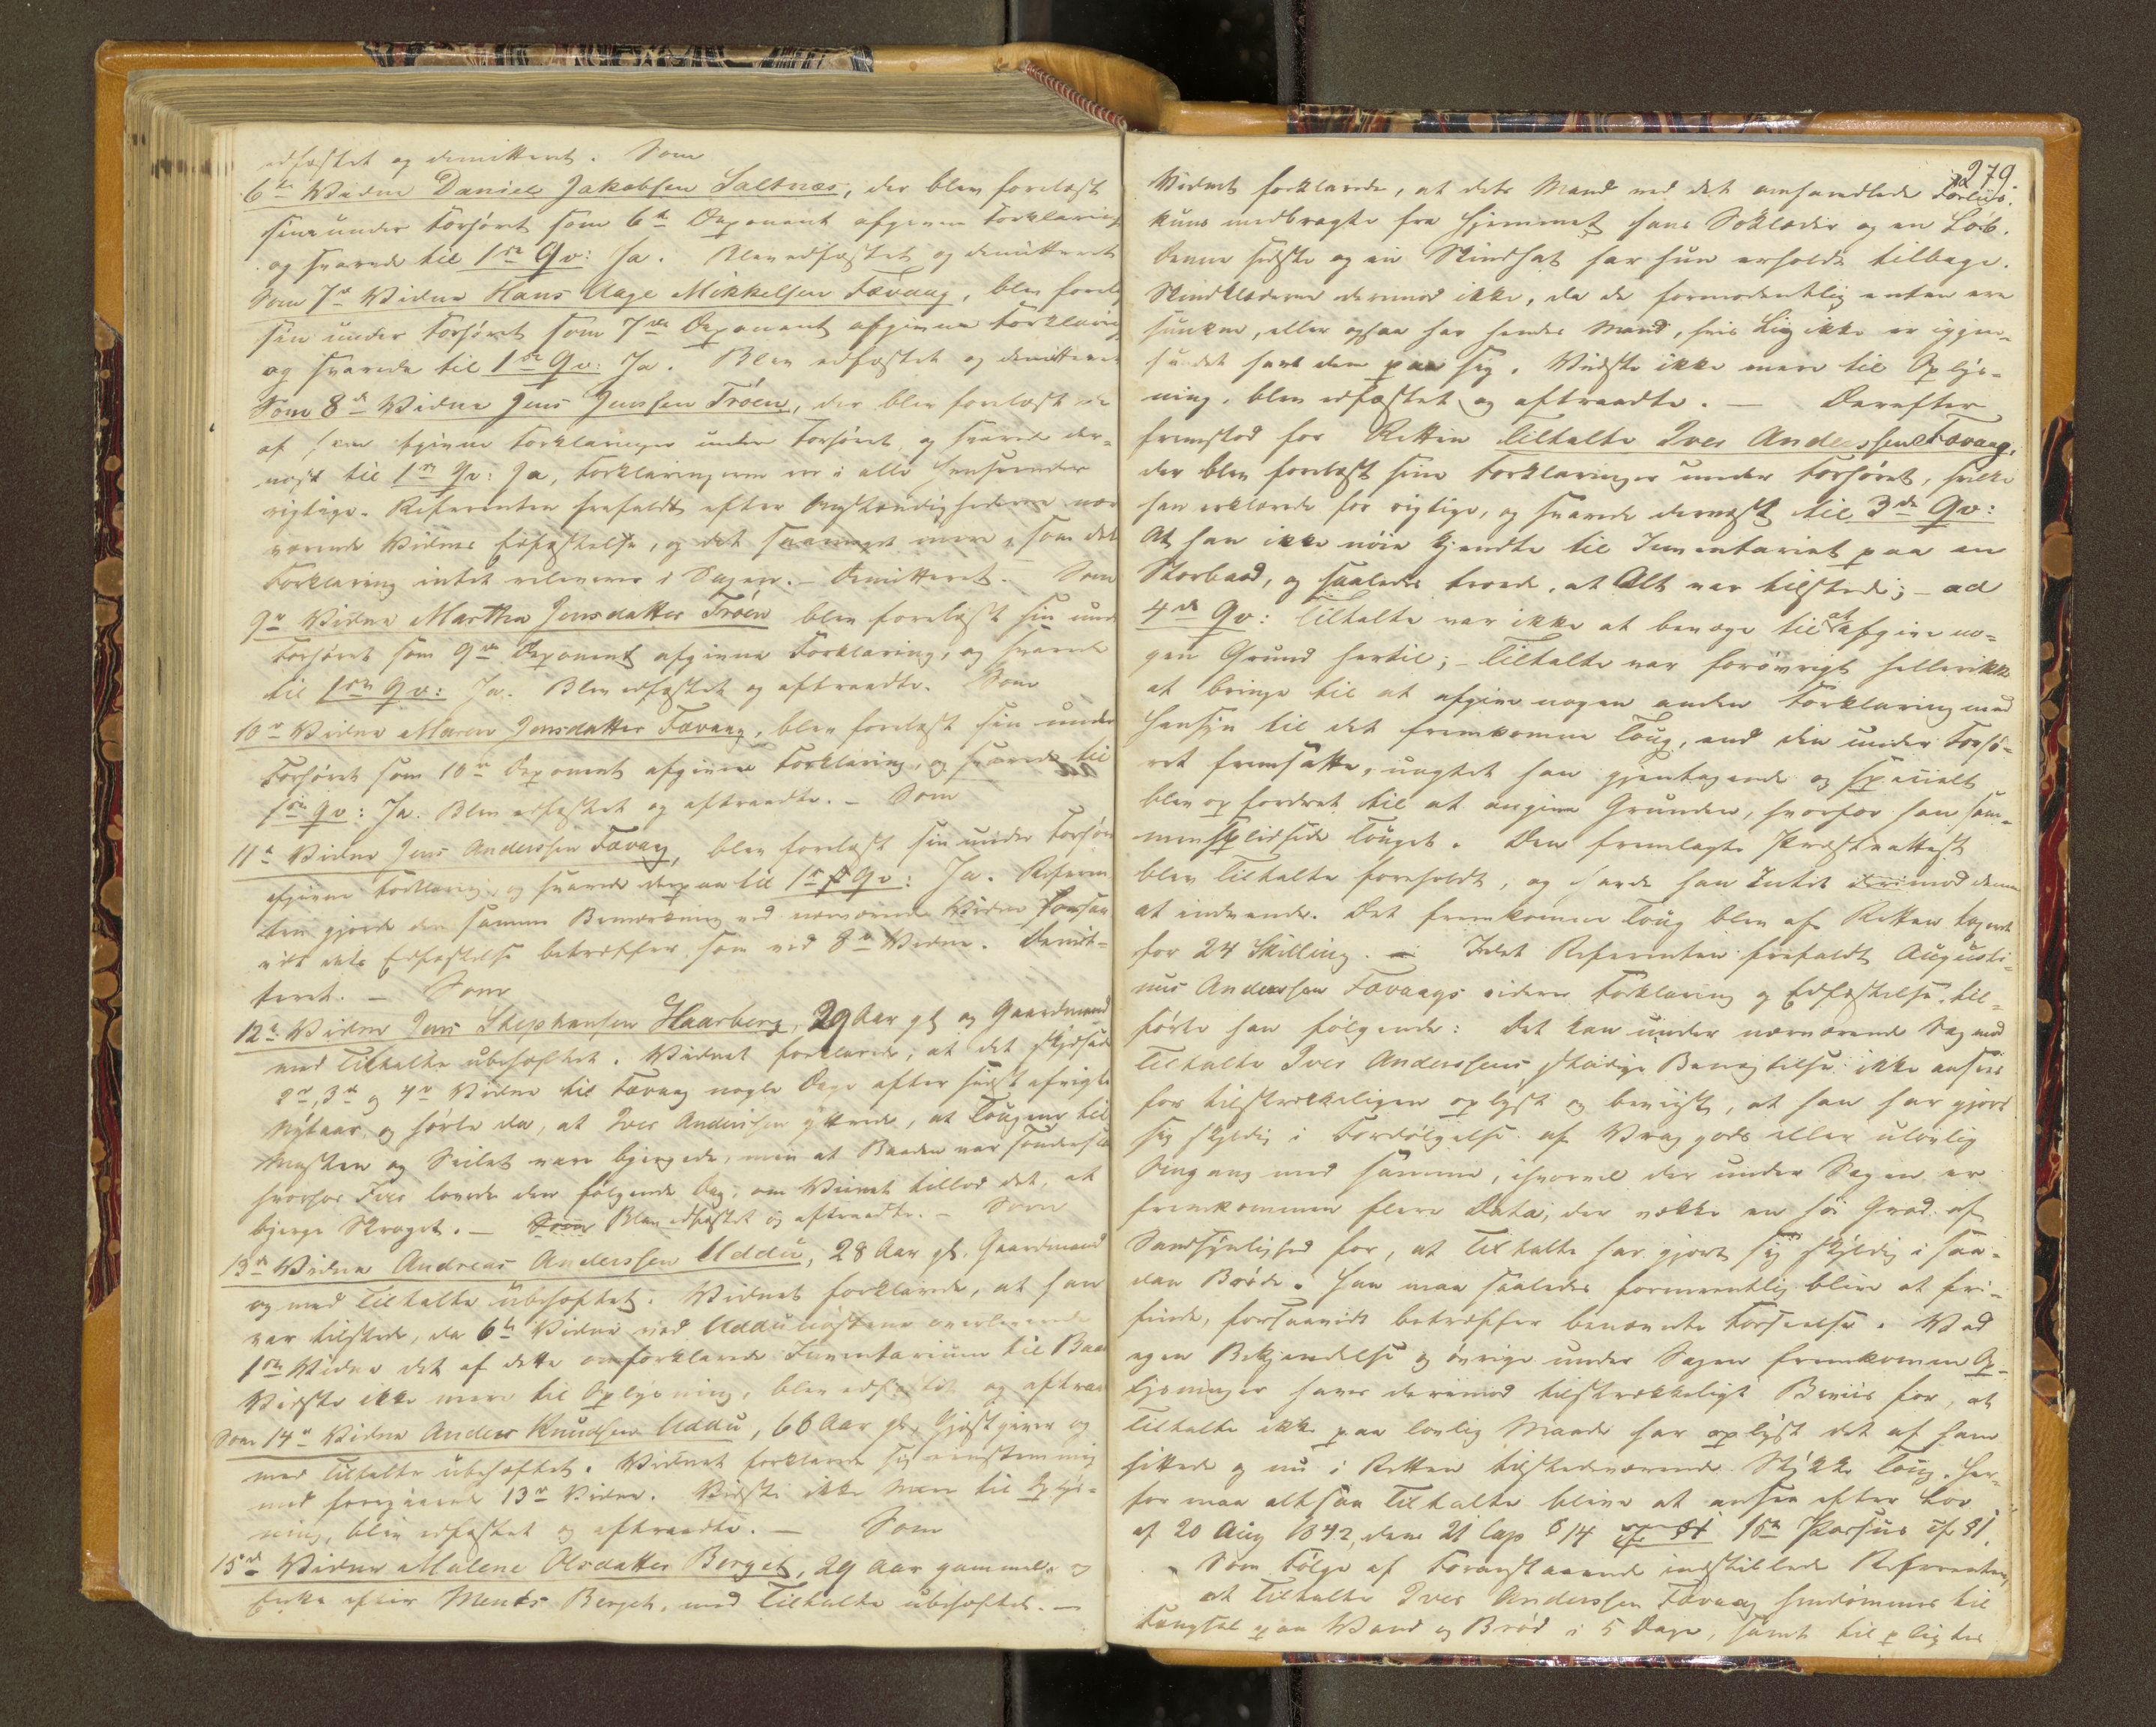 edfæstet og demitteret. Som
6te Vidne Daniel Jakobsen Saltnæs, der blev forelæst
sin under Forhøret som 6te Deponent afgivne Forklaring
og svarede til 1ste Qv: Ja. Blev edfæstet og demitteret
Som 7de Vidne Hans Aage Mikkelsen Tævaag, blev forel
sin under Forhøret som 7de Deponent afgivne Forklaring
og svarede til 1ste Qv: Ja. Blev edfæstet og demitteret
Som 8de Vidne Jens Jensen Trøen, der blev forelæst de
af ham afgivne Forklaringer under Forhøret og svarede der-
næst til 1ste Qv: Ja, Forklaringerne er i alle Henseender
rigtige. Referenten frafaldt efter Omstændighederne nær
værende Vidnes Edfæstelse, og det saameget mere, som dets
Forklaring intet releverer i Sagen. - Demitteret. Som
9de Vidne Martha Jensdatter Trøen blev forelæst sin und
Forhøret som 9de Deponent afgivne Forklaring, og svarede
til 1ste Qv: Ja. Blev edfæstet og aftraadte. Som
10de Vidne Maren Jensdatter Tævaag, blev forelæst sin under
Forhøret som 10de Deponent afgivne Forklaring, og svarede til
1ste Qv: Ja. Blev edfæstet og aftraadte. - Som
11te Vidne Jens Anderssen Tævaag, blev forelæst sin under Forhør
afgivne Forklaring, og svarede derpaa til 1ste Qv: Ja. Referen
ten gjorde den samme Bemærkning ved nærværende Vidne forsaa
vidt dets Edfæstelse betræffer som ved 8de Vidne. Demit-
teret. - Som
12te Vidne Jens Stephansen Haarberg, 29 Aar gl og Gaardmand
med Tiltalte ubehæftet. Vidnet forklarede, at det skydsede
2det, 3de og 4de Vidne til Tævaag nogle Dage efter sidst afvigte
Nytaar og hørte da, at Iver Anderssen yttrede, at Tougene til
Masten og Seilet vare bjergede, men at Baaden var sønderslaa
hvorfor Iver lovede den følgende Dag, om Veiret tillod det, at
bjerge Vraget. - Blev edfæstet og aftraadte. - Som
13de Vidne Andreas Anderssen Uddu, 28 Aar gl. Gaardmand
og med Tiltalte ubehæftet. Vidnet forklarede, at han
var tilstede, da 6te Vidne ved Uddunøstene overleverede
1ste Vidne det af dette omforklarede Inventarium til Baad
Vidste ikke mere til Oplysning, blev edfæstet og aftraa
Som 14de Vidne Anders Knudsen Uddu, 66 Aar gl, Gjæstgiver og
med Tiltalte ubehæftet. Vidnet forklarede sig eenstemmig
med foregaaende 13de Vidne. Vidste ikke mere til Oplys-
ning, blev edfæstet og aftraadte. - Som
15de Vidne Malene Olsdatter Berget, 29 Aar gammel og
Enke efter Ments Berget, med Tiltalte ubehæftet. -
279.
Vidnet forklarede, at dets Mand ved det omhandlede Forliis
kuns medbragte fra Hjemmet hans Søklæder og en Løb.
Denne sidste og en Skindhat har hun erholdt tilbage.
Skindklæderne derimod ikke, da de formodentlig enten ere
sunkne, eller ogsaa har hendes Mand, hvis Liig ikke er igjen-
fundet havt dem paa sig. Vidste ikke mere til Oplys-
ning, blev edfæstet og aftraadte. - Derefter
fremstod for Retten Tiltalte Iver Anderssen Tævaag,
der blev forelæst sine Forklaringer under Forhøret, hvilke
han erklærede for rigtige, og svarede dernæst til 3die Qv:
At han ikke nøie kjendte til Inventariet paa en
Storbaad, og saaledes troede, at Alt var tilstede; - ad
4de Qv: Tiltalte var ikke at bevæge til at afgive no-
gen Grund hertil; - Tiltalte var forøvrigt hellerikke
at bringe til at afgive nogen anden Forklaring med
Hensyn til det fremkomne Toug, end den under Forhø-
ret fremsatte, uagtet han gjentagende og specielt
blev opfordret til at angive Grunden, hvorfor han sam-
mensplidsede Touget. Den fremlagte Præsteattest
blev Tiltalte foreholdt, og havde han Intet imod denne
at indvende. Det fremkomne Toug blev af Retten taxeret
for 24 Skilling. - Idet Referenten frafaldt Augusti-
nus Anderssen Tævaags videre Forklaring og Edfæstelse, til-
førte han følgende: Det kan under nærværende Sag med
Tiltalte Iver Anderssens stadige Benægtelse ikke ansees
for tilstrækkeligen oplyst og beviist, at han har gjort
sig skyldig i Fordølgelse af Vraggods eller ulovlig
Omgang med samme, ihvorvel der under Sagen er
fremkommen flere Data, der vække en høi Grad af
Sandsynlighed for, at Tiltalte har gjort sig skyldig i saa-
dan Brøde. Han maa saaledes formeentlig blive at fri-
finde, forsaavidt betræffer benævnte Forseelse. Ved
egen Bekjendelse og øvrige under Sagen fremkomne Op-
lysninger haves derimod tilstrækkeligt Beviis for, at
Tiltalte ikke paa lovlig Maade har oplyst det af ham
hittede og nu i Retten tilstedeværende Stykke Toug. Her-
for maa altsaa Tiltalte blive at ansee efter Lov
af 20 Aug 1842, dens 21 Cap § 14 10de Passus cfr § 1.
Som Følge af Foranstaaende indstillede Referenten,
at Tiltalte Iver Anderssen Tævaag hendømmes til
Fængsel paa Vand og Brød i 5 Dage, samt tilpligtes